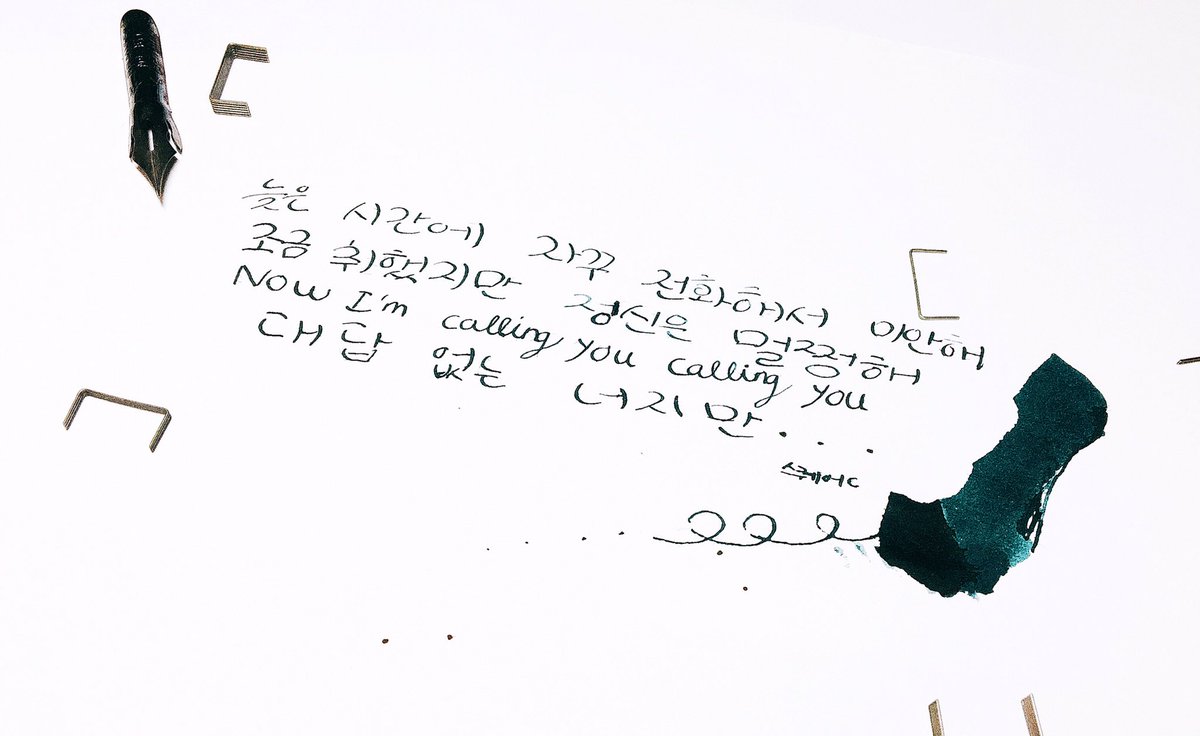 늦은 시간에 자꾸 전화해서 미안해
조금 취했지만 정신은 멀쩡해
Now I'm calling you calling you
대답 없는 너지만...
스퀘어C